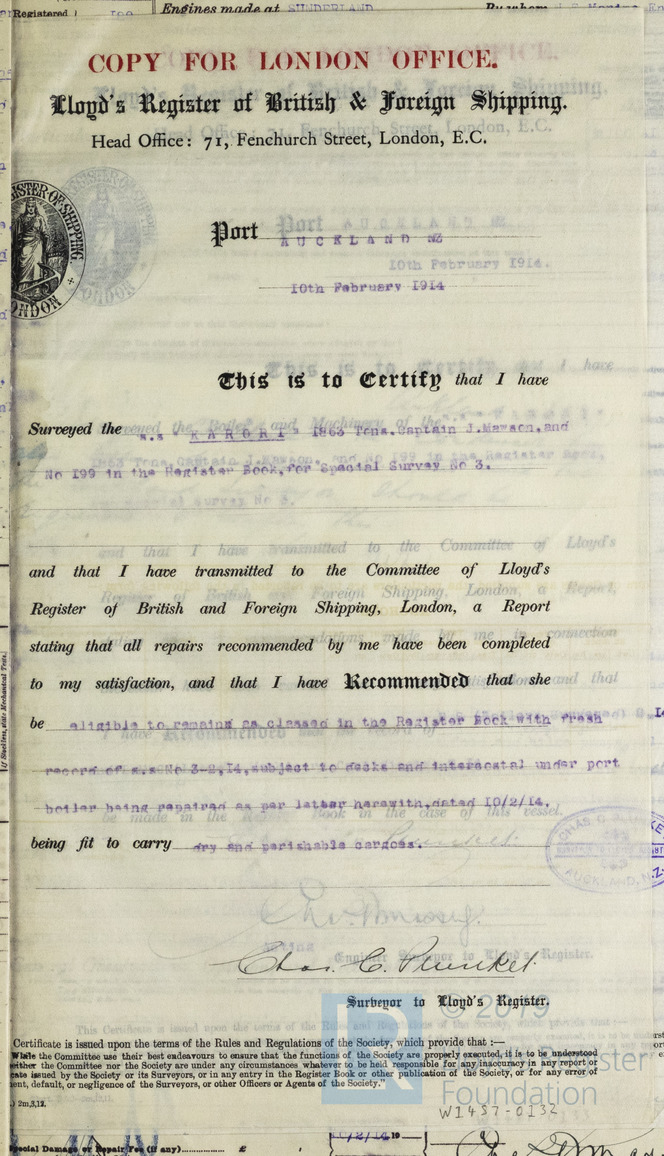 Registered
Engines made at SUNDERLAND
COPY FOR LONDON OFFICE.
Lloyd's Register of British & Foreign Shipping.
Head Office: 71, Fenchurch Street, London, E.C.
REGISTER OF SHIPPING.
LONDON
Port AUCKLAND NZ
10th February 1914.
10th February 1914
This is to Certify that I have
Surveyed the s.s "KARORI" 1863 Tons.Captain J.Mawson.and
No 199 in the Register Book,for Special Survey No 3.
and that I have transmitted to the Committee of Lloyd's
Register of British and Foreign Shipping, London, a Report
stating that all repairs recommended by me have been completed
to my satisfaction, and that I have Recommended that she
be eligible to remain as classed in the Register Book with fresh
record of s.s No 3-2,14,subject to decks and intercostal under port
boiler being repaired as per letter herewith,dated 10/2/14.
being fit to carry dry and perishable cargoes.
CHAS C
AUCKLAND, N.Z.
Chas. C. Plunket.
Surveyor to Lloyd's Register.
Certificate is issued upon the terms of the Rules and Regulations of the Society, which provide that :—
While the Committee use their best endeavours to ensure that the functions of the Society are properly executed, it is to be understood
either the Committee nor the Society are under any circumstances whatever to be held responsible for any inaccuracy in any report or
cate issued by the Society or its Surveyors, or in any entry in the Register Book or other publication of the Society, or for any error of
ent, default, or negligence of the Surveyors, or other Officers or Agents of the Society."
2m,3,12.
© 2019
Register
Foundation
W1487-0132
pecial Damage or Repair Fee (if any) £
10/2/14 19